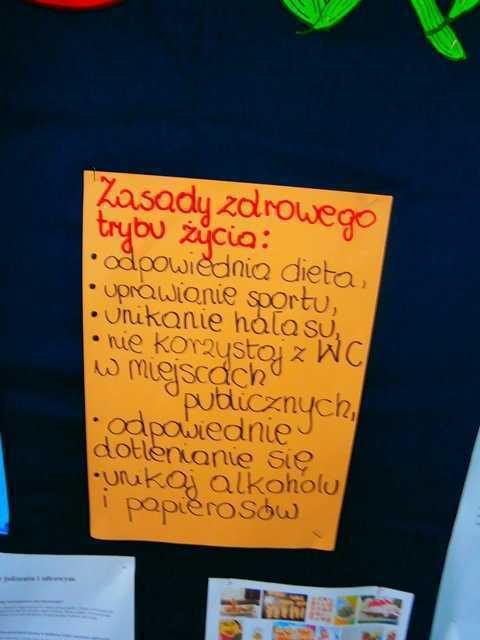 Zasady zdrowego
trybu życia:
• odpowiednia dieta,
• uprawianie sportu,
• unikanie hałasu,
• nie korzystaj z WC
w miejscach
publicznych,
• odpowiednie
dotlenianie się
• unikaj alkoholu
i papierosów